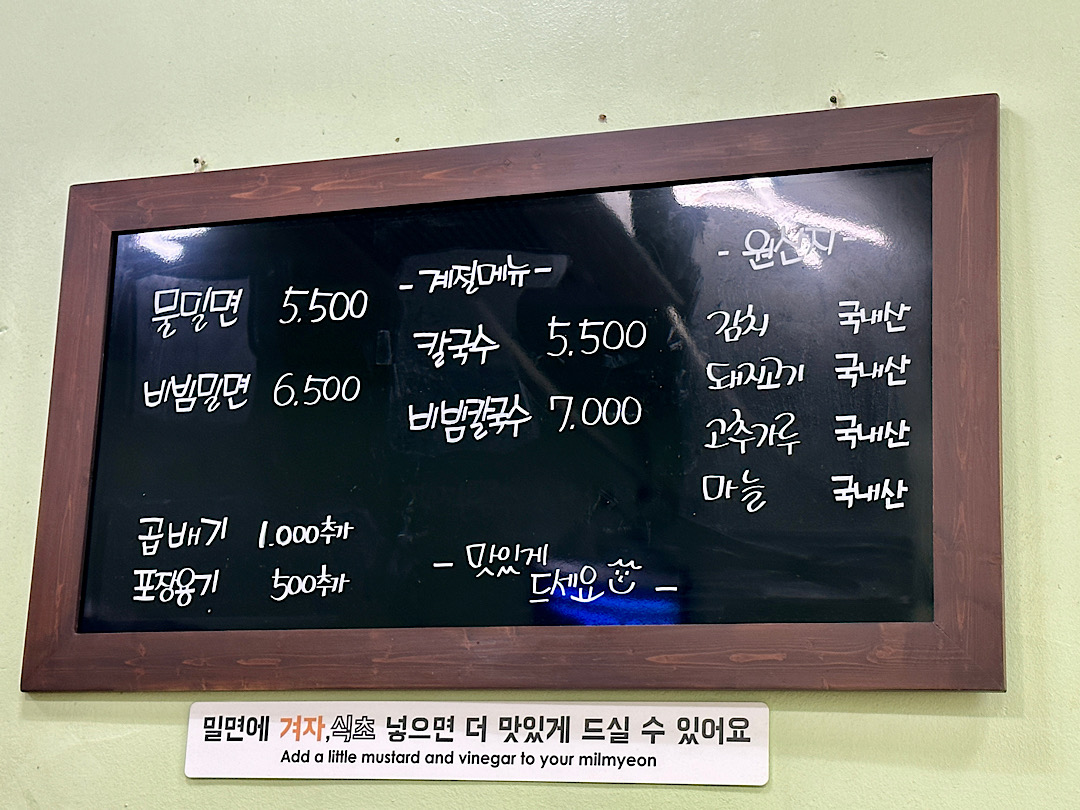 물밀면 5.500
비빔밀면 6.500
곱배기 1.000추가
포장용기 500추가
- 계절메뉴 -
칼국수 5,500
비빔칼국수 7.000
- 맛있게
드세요 -
- 원산지 -
김치 국내산
돼지고기 국내산
고추가루 국내산
마늘 국내산
밀면에 겨자,식초 넣으면 더 맛있게 드실 수 있어요
Add a little mustard and vinegar to your milmyeon